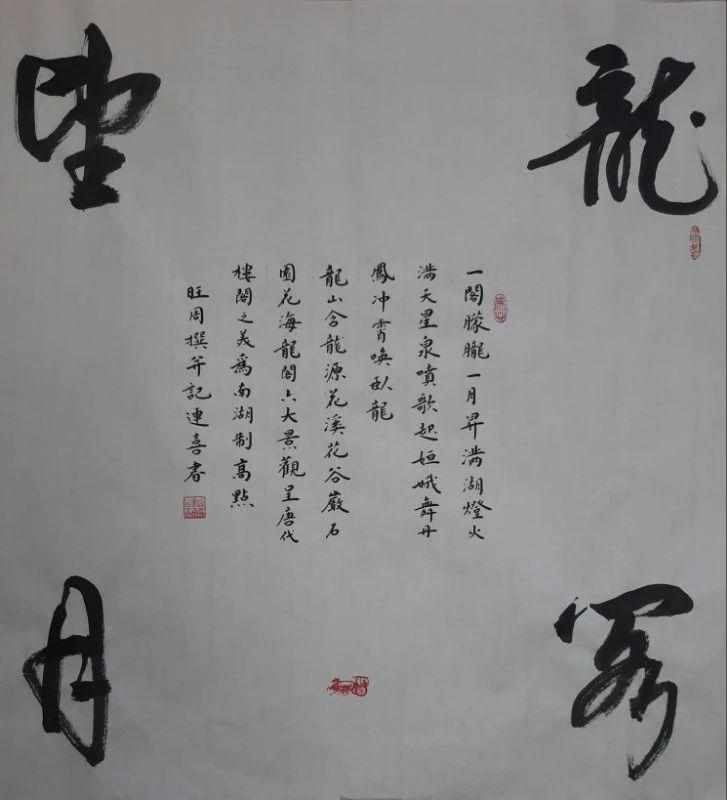 龍
閣
望
月
一閣朦朧一月昇滿湖燈火
滿天星泉噴歌起姮娥舞丹
鳳冲霄喚臥龍
龍山含龍源花溪花谷巖石
園花海龍閣六大景觀呈唐代
樓閣之美爲南湖制高點
旺周撰并記連喜書